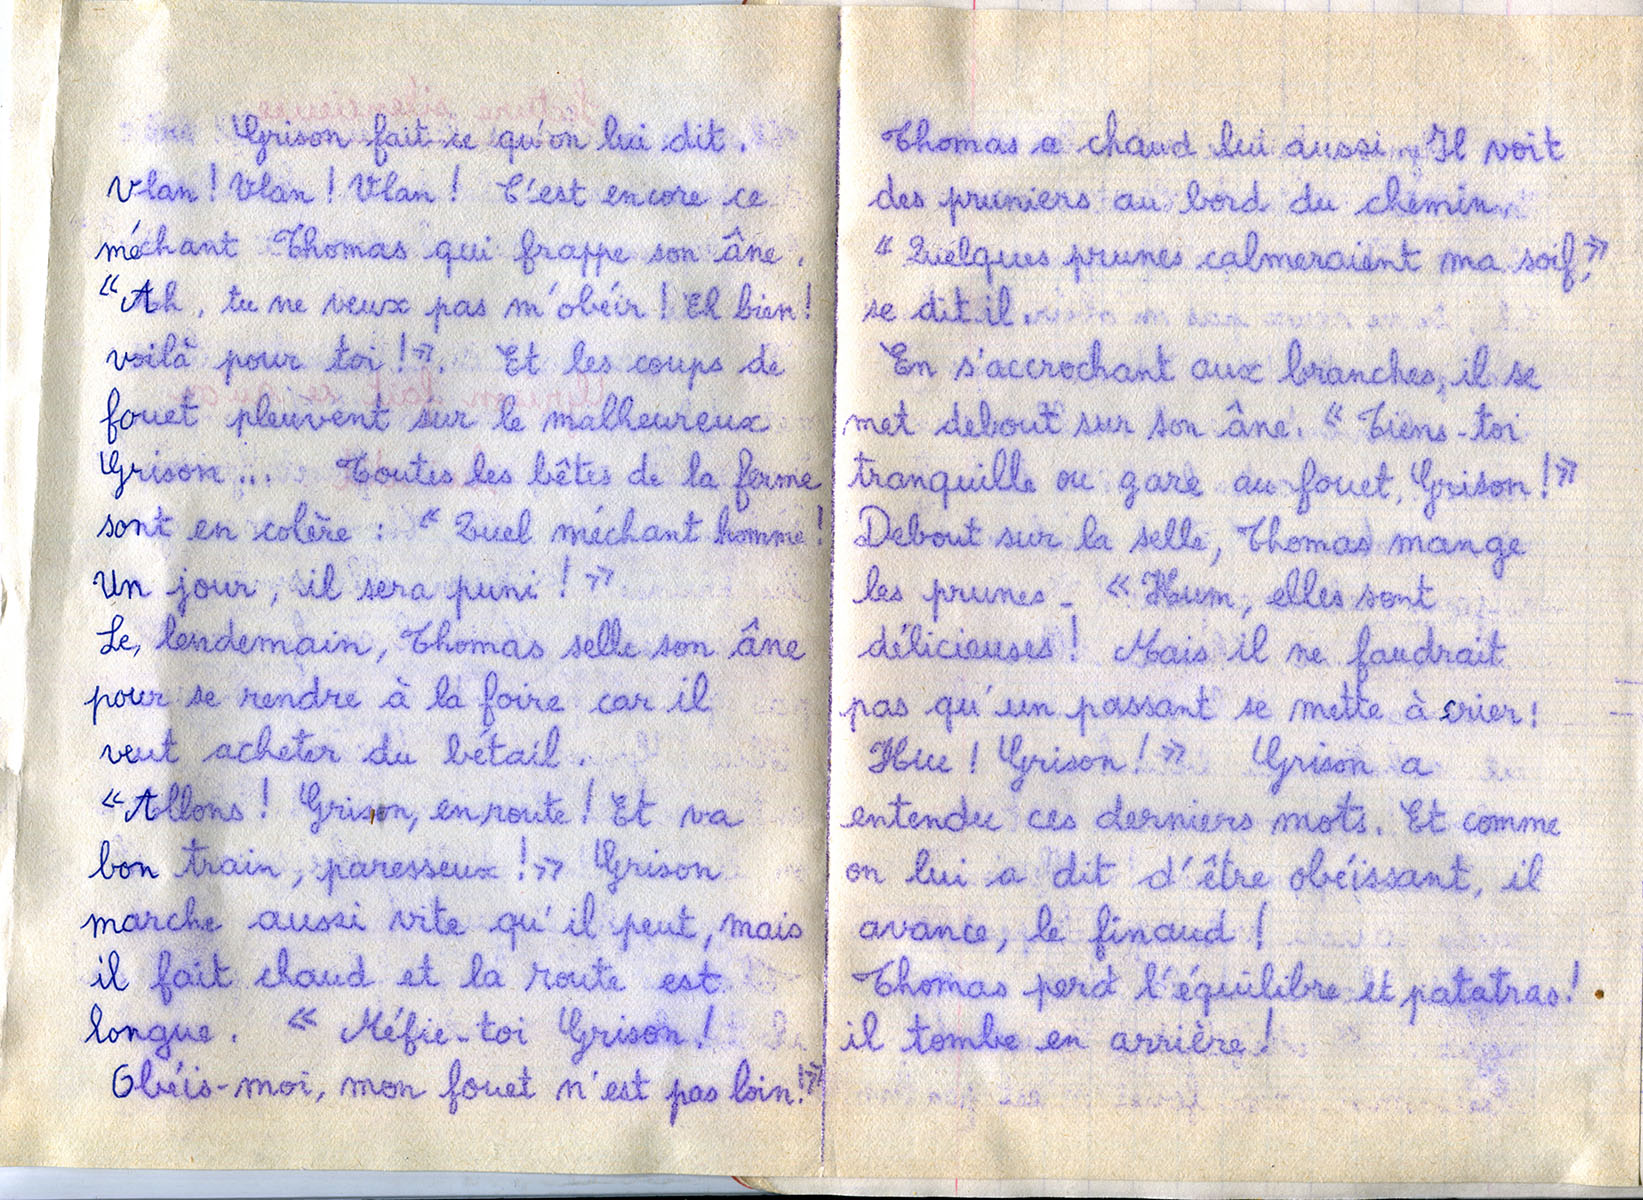 Grison fait ce qu'on lui dit.
Vlan ! Vlan ! Vlan ! C'est encore ce
méchant Thomas qui frappe son âne.
“Ah, tu ne veux pas m'obéir ! Eh bien !
voilà pour toi !». Et les coups de
fouet pleuvent sur le malheureux
Grison... Toutes les bêtes de la ferme
sont en colère : “ Quel méchant homme !
Un jour, il sera puni ! »
Le, lendemain, Thomas selle son âne
pour se rendre à la foire car il
veut acheter du bétail.
“Allons ! Grison, en route ! Et va
bon train, paresseux ! » Grison
marche aussi vite qu'il peut, mais
il fait chaud et la route est
longue. « Méfie-toi Grison !
Obéis-moi, mon fouet n'est pas loin.!»
Thomas a chaud lui aussi. Il voit
des pruniers au bord du chemin.
“ Quelques prunes calmeraient ma soif,»
se dit il.
En s'accrochant aux branches, il se
met debout sur son âne. “ Tiens-toi
tranquille ou gare au fouet, Grison ! »
Debout sur la selle, Thomas mange
les prunes - « Hum, elles sont
délicieuses ! Mais il ne faudrait
pas qu'un passant se mette à crier :
Hue ! Grison ! » Grison a
entendu ces derniers mots. Et comme
on lui a dit d'être obéissant, il
avance, le finaud !
Thomas perd l'équilibre et patatras !
il tombe en arrière !